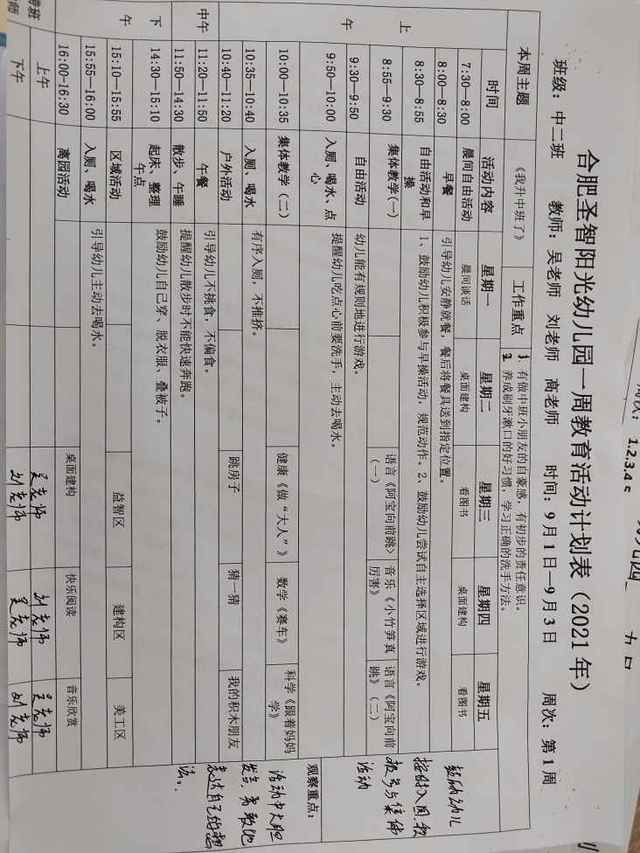 合肥圣智阳光幼儿园一周教育活动计划表（2021年）
班级：中二班 教师：吴老师 刘老师 高老师 时间：9月1日—9月3日 周次：第1周
本周主题 《我升中班了》 工作重点 1、有做中班小朋友的自豪感，有初步的责任意识。
2、养成刷牙漱口的好习惯，学习正确的洗手方法。
时间 活动内容 星期一 星期二 星期三 星期四 星期五
上午
7:30—8:00 晨间自由活动 晨间谈话 桌面建构 看图书 桌面建构 看图书
8:00—8:30 早餐 引导幼儿安静就餐，餐后将餐具送到指定位置。
8:30—8:55 自由活动和早操 1、鼓励幼儿积极参与早操活动，规范动作。2、鼓励幼儿尝试自主选择区域进行游戏。
8:55—9:30 集体教学(一) 语言《阿宝向前跳》（一） 音乐《小竹笋真厉害》 语言《阿宝向前跳》（二）
9:30—9:50 自由活动 幼儿能有规则地进行游戏。
9:50—10:00 入厕、喝水、点心 提醒幼儿吃点心前要洗手，主动去喝水。
10:00—10:35 集体教学（二） 健康《做“大人”》 数学《赛车》 科学《跟着妈妈学》
10:35—10:40 入厕、喝水 有序入厕，不推挤。
10:40—11:20 户外活动 跳房子 猜一猜 我的积木朋友
中午
11:20—11:50 午餐 引导幼儿不挑食，不偏食。
11:50—14:30 散步、午睡 提醒幼儿散步时不能快速奔跑。
下午
14:30—15:10 起床、整理午点 鼓励幼儿自己穿、脱衣服、叠被子。
15:10—15:55 区域活动 益智区 建构区 美工区
15:55—16:00 入厕、喝水 引导幼儿主动去喝水。
16:00—16:30 离园活动 桌面建构 快乐阅读 音乐欣赏
上午 吴老师 刘老师 吴老师
下午 刘老师 吴老师 刘老师
观察重点：
鼓励幼儿
活动
活动中大胆
1.2.3.4.5